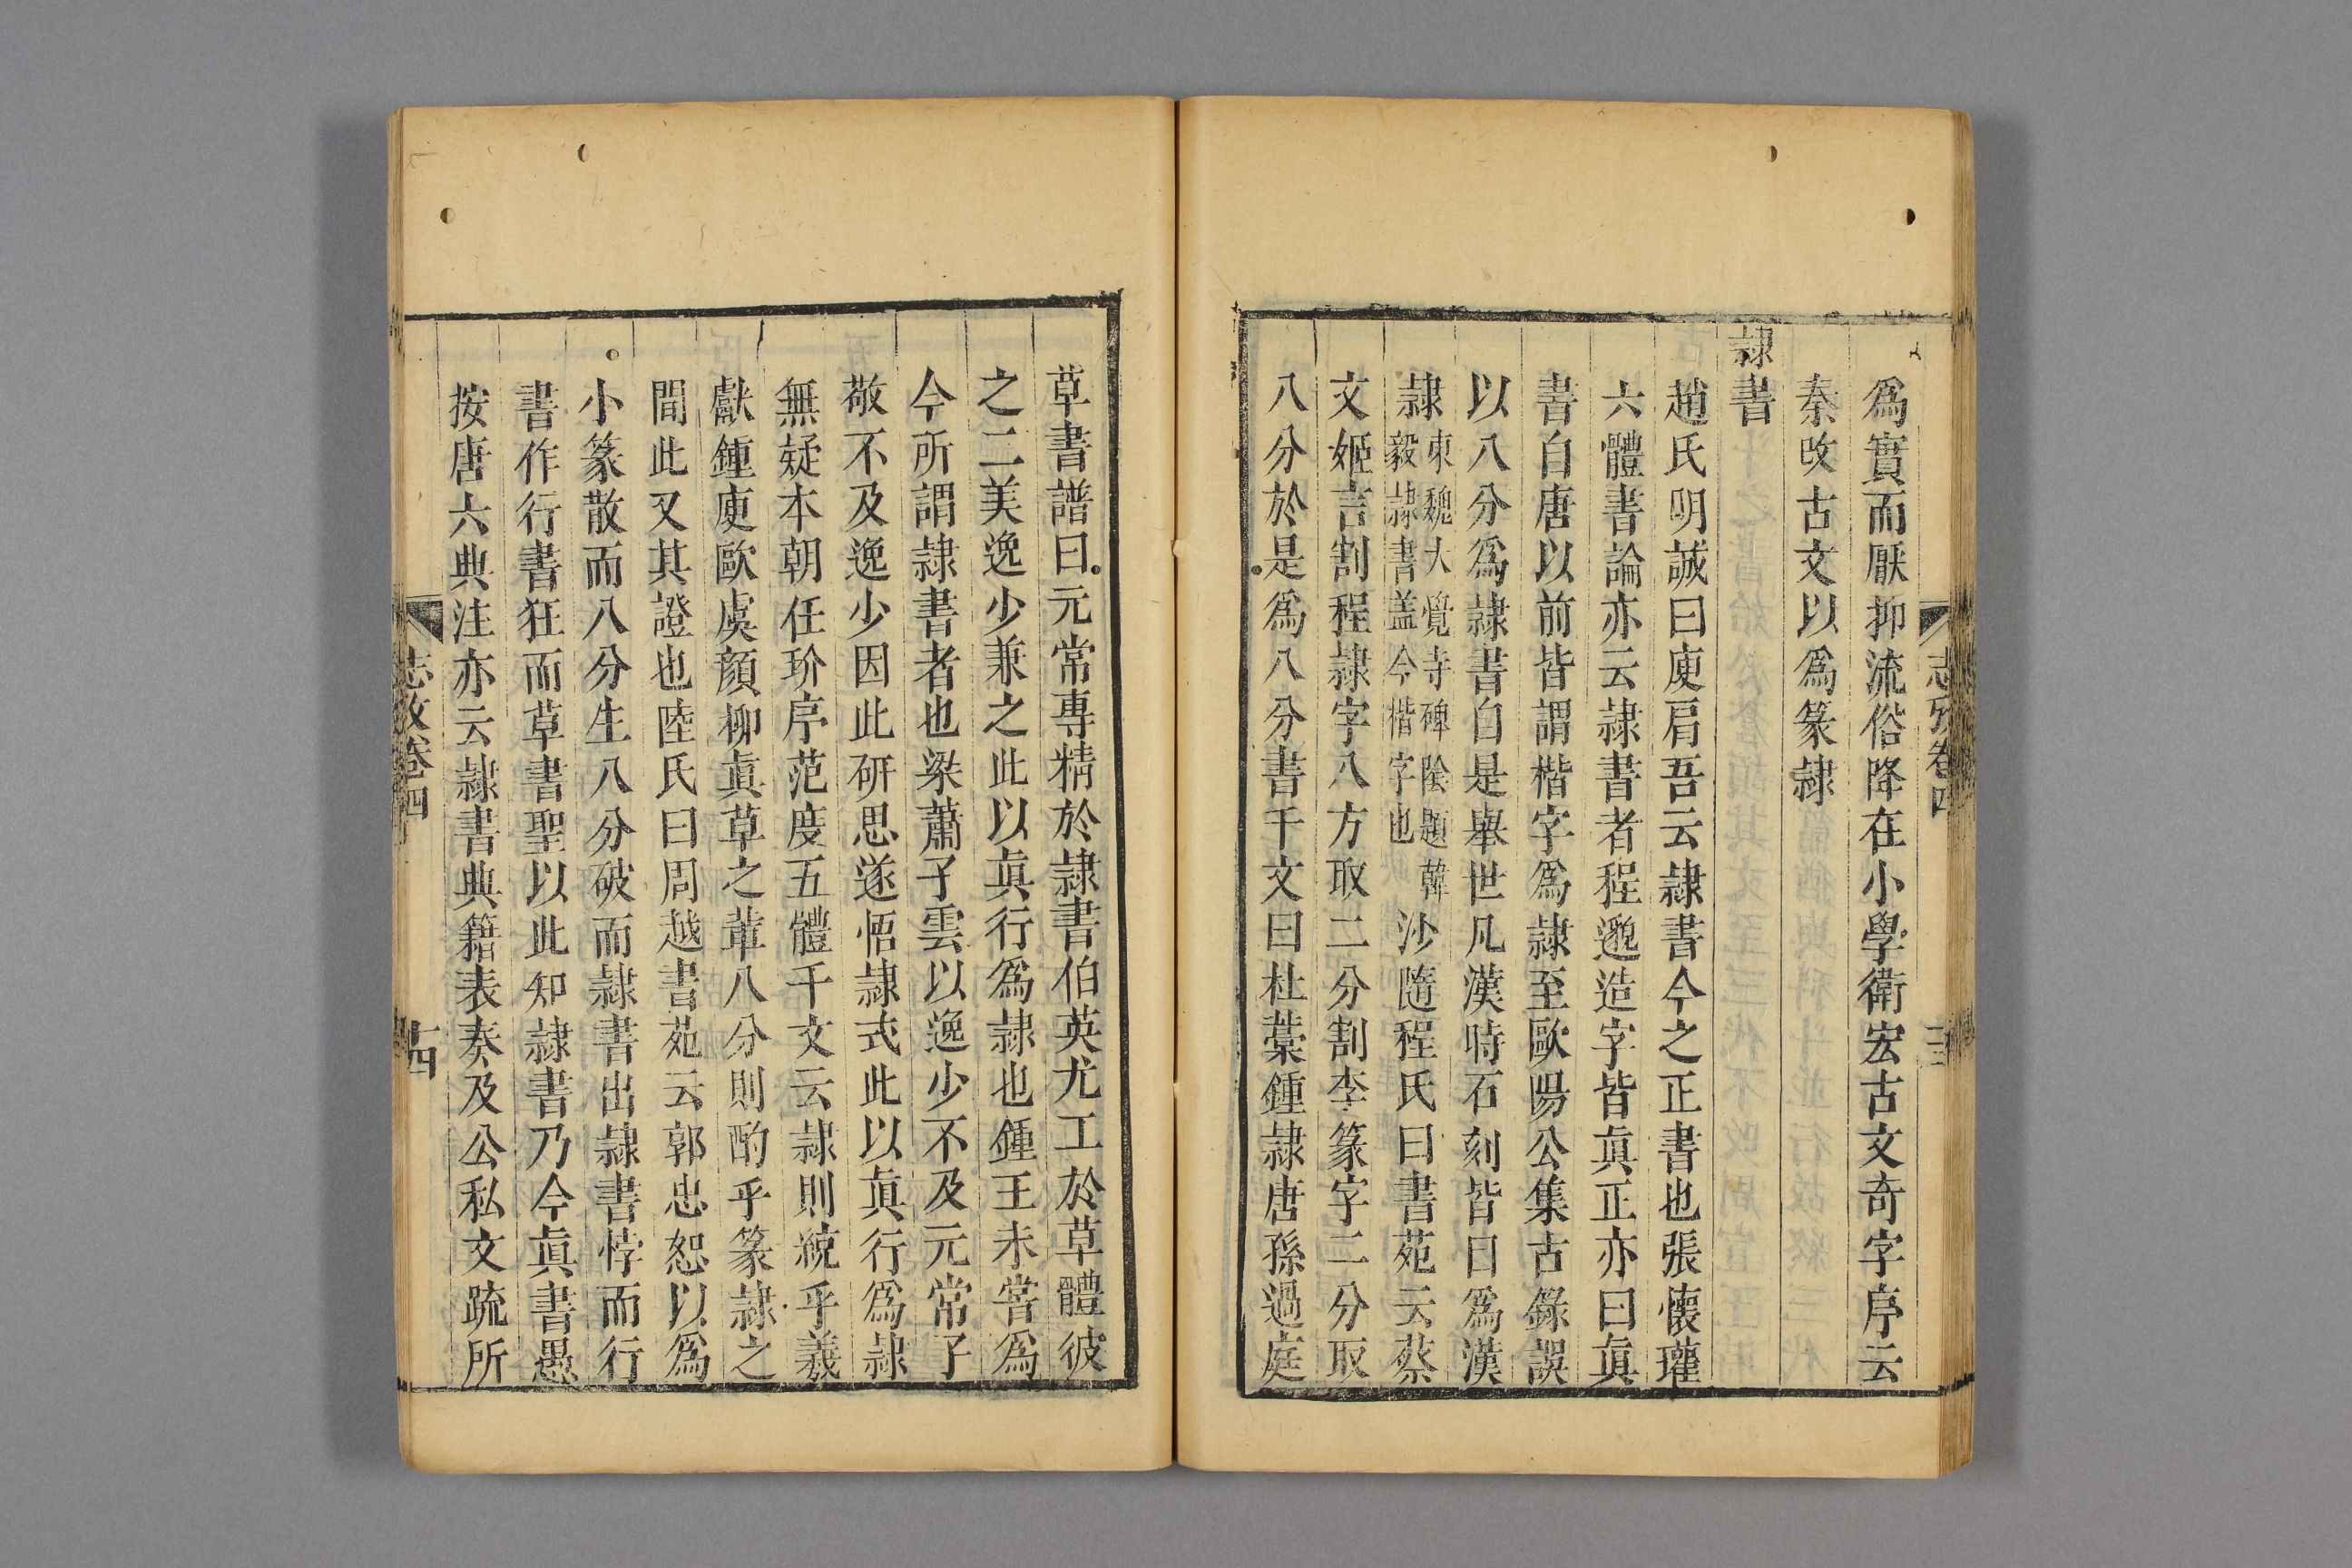 爲實而厭抑流俗降在小學衛宏古文奇字序云
秦改古文以爲篆隷
隷書
趙氏明誠曰庾肩吾云隷書今之正書也張懷瓘
六體書論亦云隷書者程邈造字皆眞正亦曰眞
書自唐以前皆謂楷字爲隷至歐陽公集古錄誤
以八分爲隷書自是舉世凡漢時石刻皆曰爲漢
隷東魏大覺寺碑陰題韓毅隷書盖今楷字也沙隨程氏曰書苑云蔡
文姬言割程隷字八方取二分割李篆字二分取
八分於是爲八分書千文曰杜藁鍾隷唐孫過庭
志攷卷四
草書譜曰元常專精於隷書伯英尤工於草體彼
之二美逸少兼之此以眞行爲隷也鍾王未甞爲
今所謂隷書者也梁蕭子雲以逸少不及元常子
敬不及逸少因此研思遂悟隷式此以眞行爲隷
無疑本朝任玠序范度五體千文云隷則統乎羲
獻鍾庾歐虞顏柳眞草之輩八分則酌乎篆隷之
間此又其證也陸氏曰周越書苑云郭忠恕以爲
小篆散而八分生八分破而隷書出隷書悖而行
書作行書狂而草書聖以此知隷書乃今眞書愚
按唐六典注亦云隷書典籍表奏及公私文疏所
志攷卷四
十四